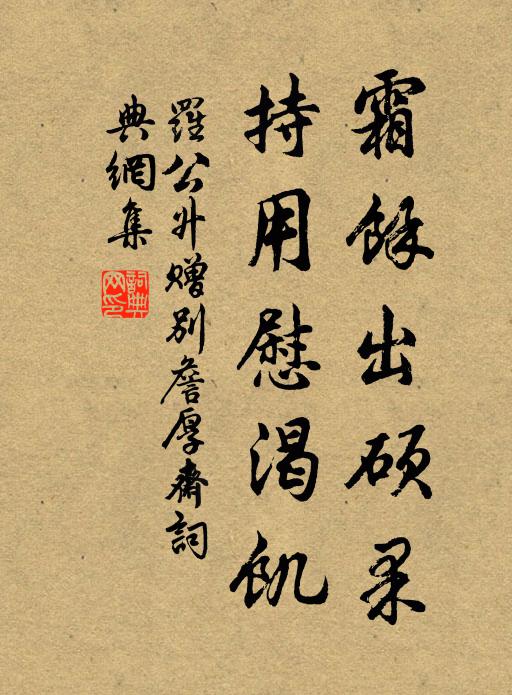 霜餘出碩果
持用慰渴飢
羅公升贈別詹厚齋詞
典網集
詞典網印